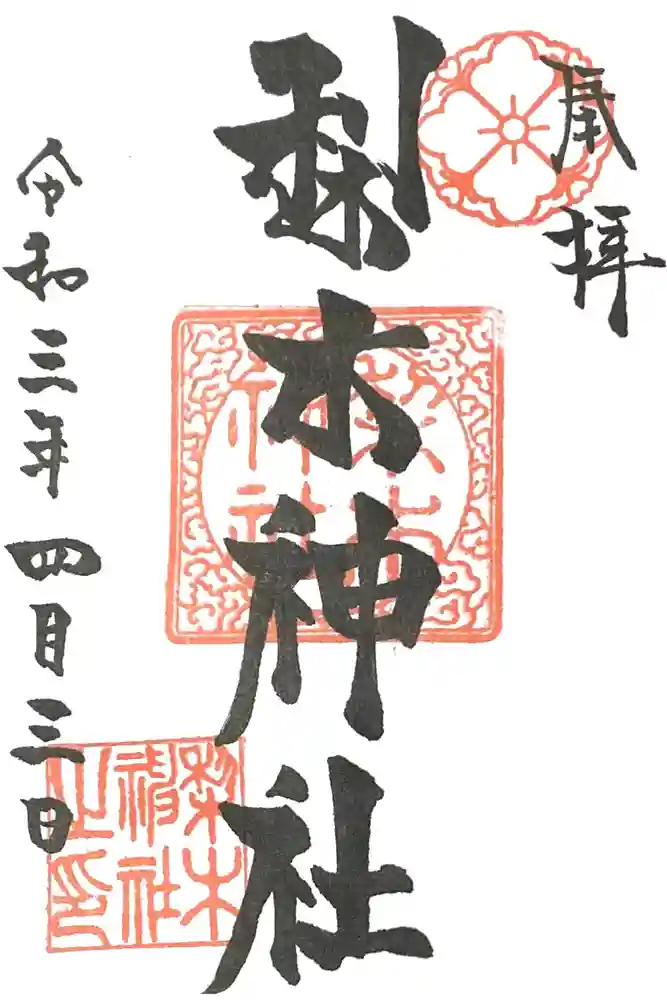 奉拝
梨木神社
梨木
神社
令和三年四月三日
梨木
神社
之印